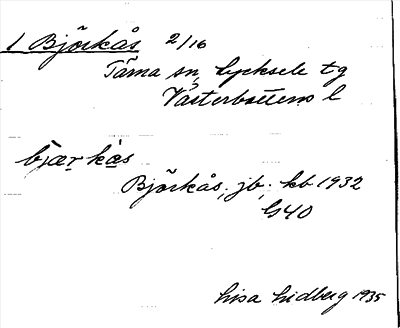 1 Björkås 2/16
Tärna sn, Lycksele tg
Västerbottens l
bjær kås
Björkås, jb, kb 1932
G40
Lisa Lidberg 1935